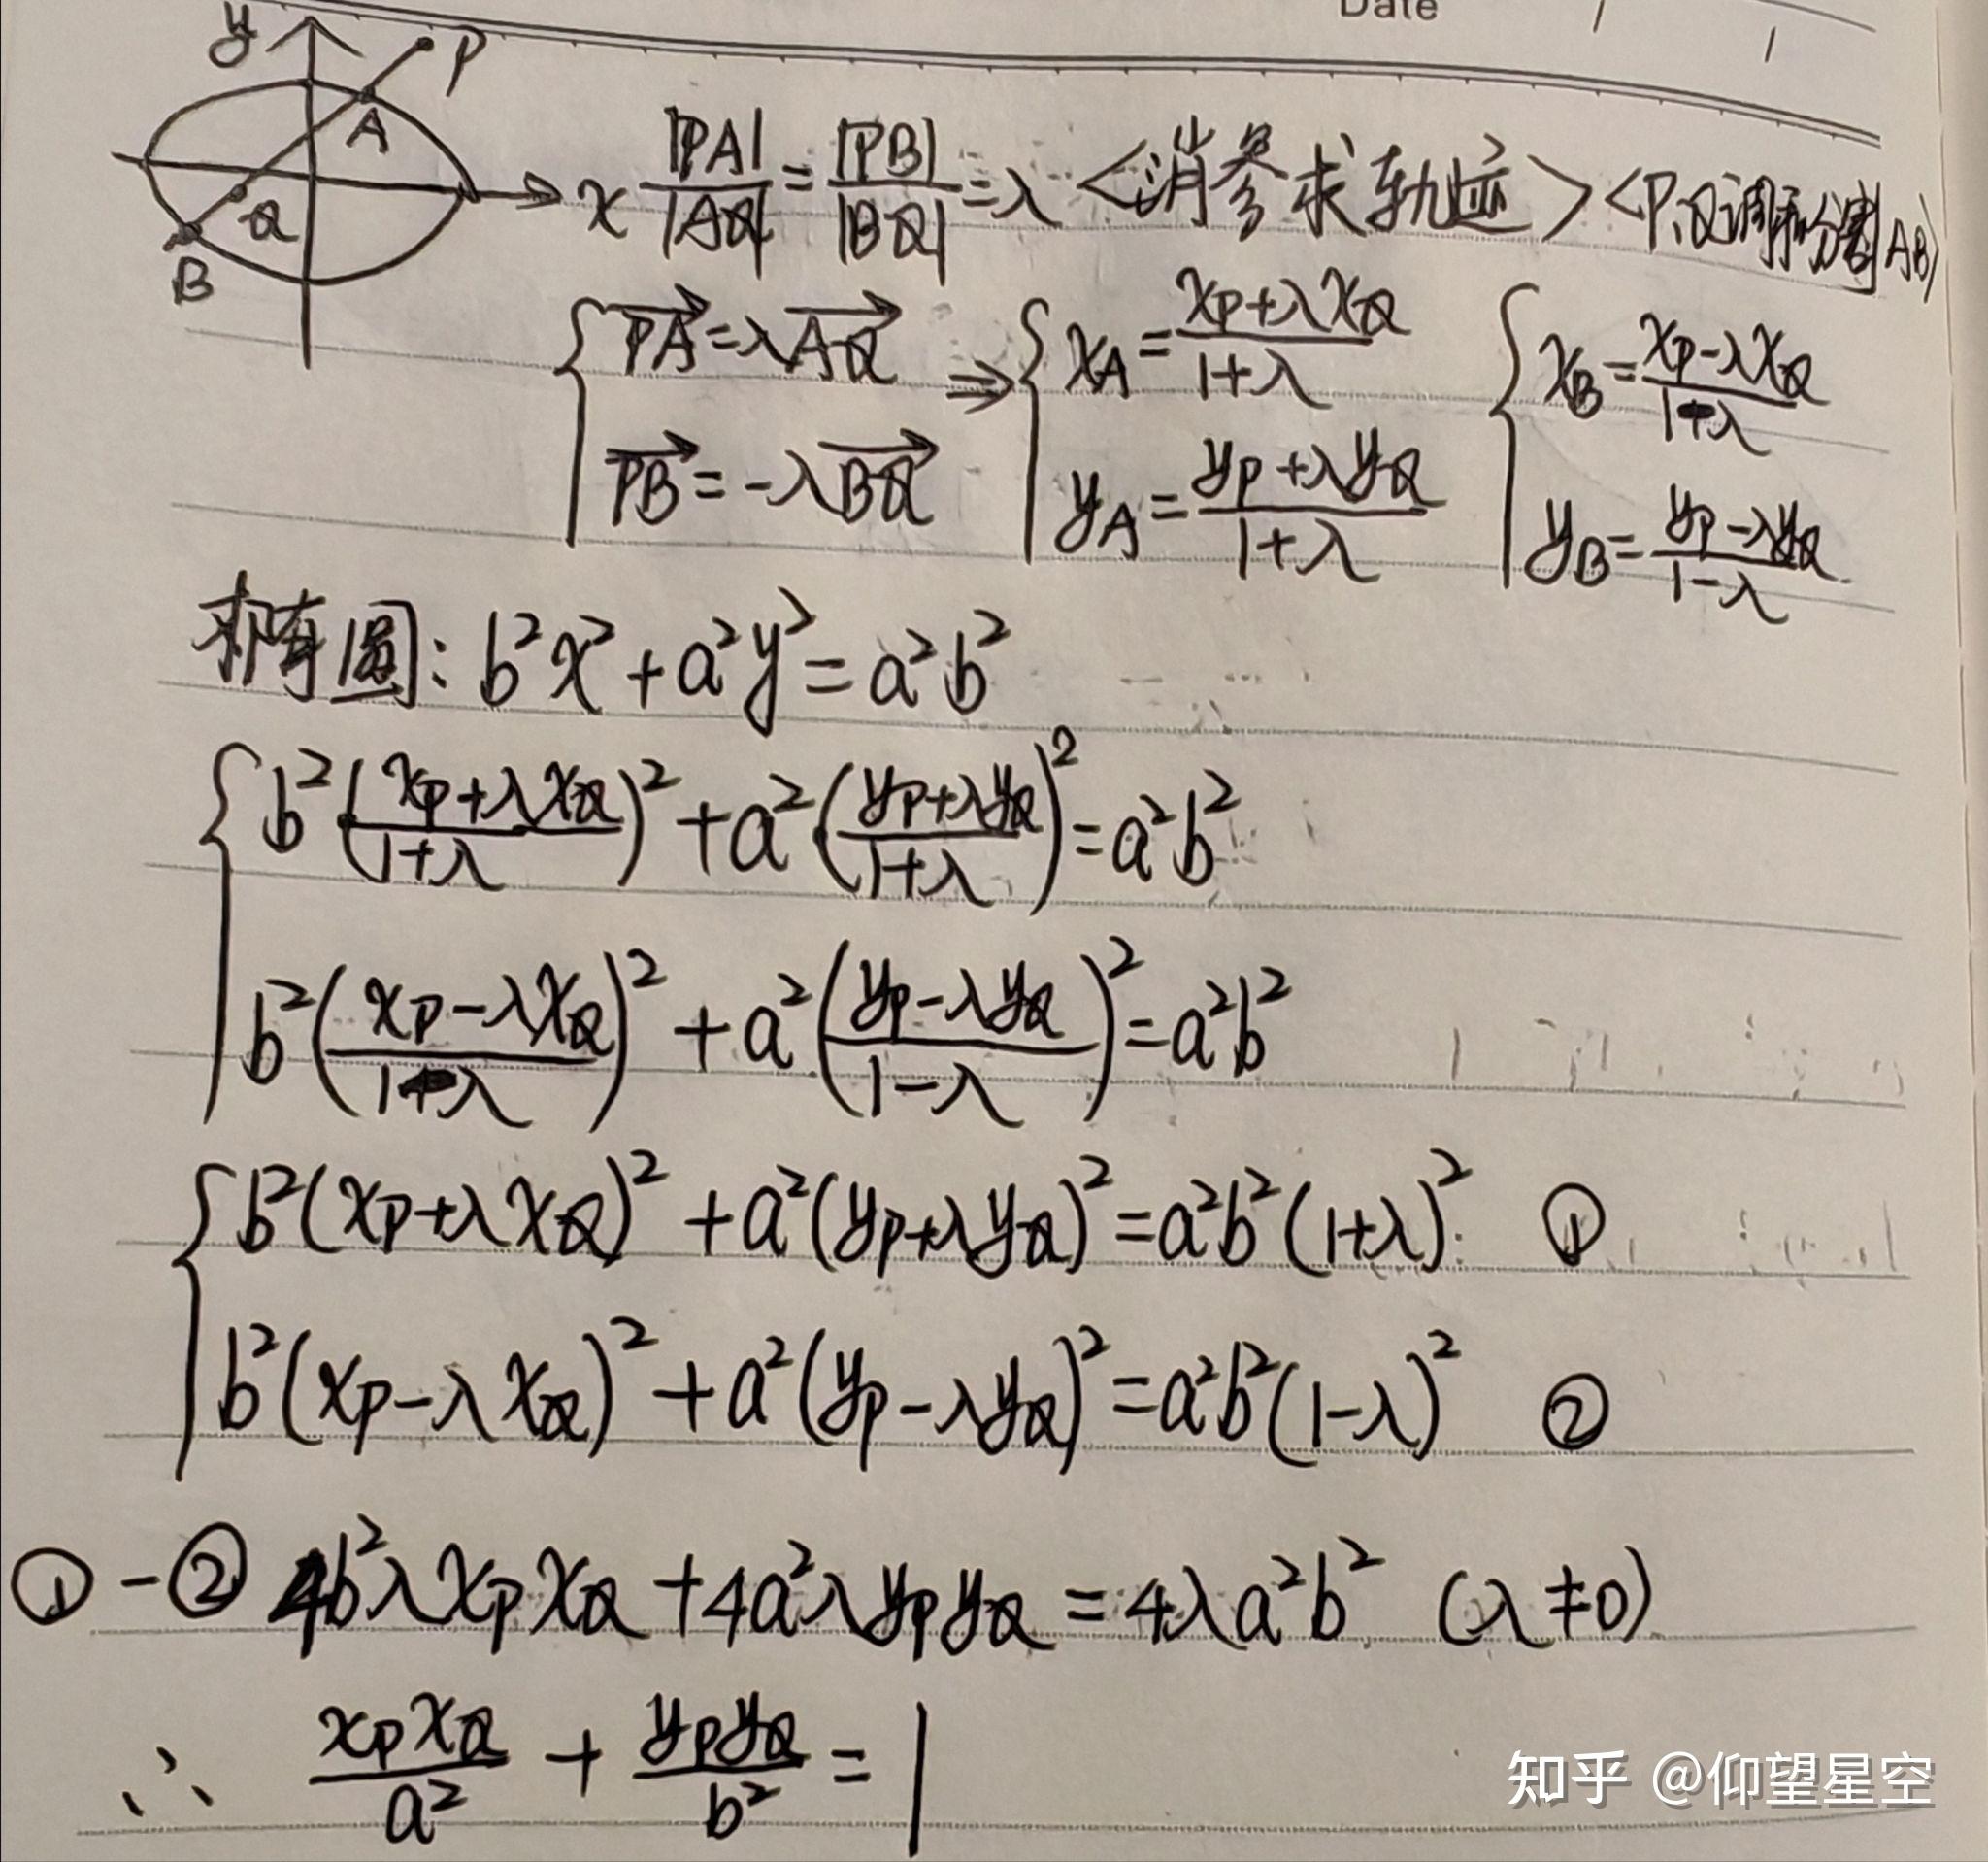 Date / /
y P A x Q B
|PA|/|AQ| = |PB|/|BQ| = λ <消参求轨迹> <P、Q调和分割AB>
{ PA→ = λAQ→ ⇒ { x_A = (x_P+λx_Q)/(1+λ) { x_B = (x_P-λx_Q)/(1-λ)
PB→ = -λBQ→ y_A = (y_P+λy_Q)/(1+λ) y_B = (y_P-λy_Q)/(1-λ)
椭圆: b²x²+a²y²=a²b²
{ b²((x_P+λx_Q)/(1+λ))² + a²·((y_P+λy_Q)/(1+λ))² = a²b²
b²((x_P-λx_Q)/(1-λ))² + a²((y_P-λy_Q)/(1-λ))² = a²b²
{ b²(x_P+λx_Q)² + a²(y_P+λy_Q)² = a²b²(1+λ)² ①
b²(x_P-λx_Q)² + a²(y_P-λy_Q)² = a²b²(1-λ)² ②
①-② 4b²λx_Px_Q + 4a²λy_Py_Q = 4λa²b² (λ≠0)
∴ x_Px_Q/a² + y_Py_Q/b² = 1
知乎 @仰望星空